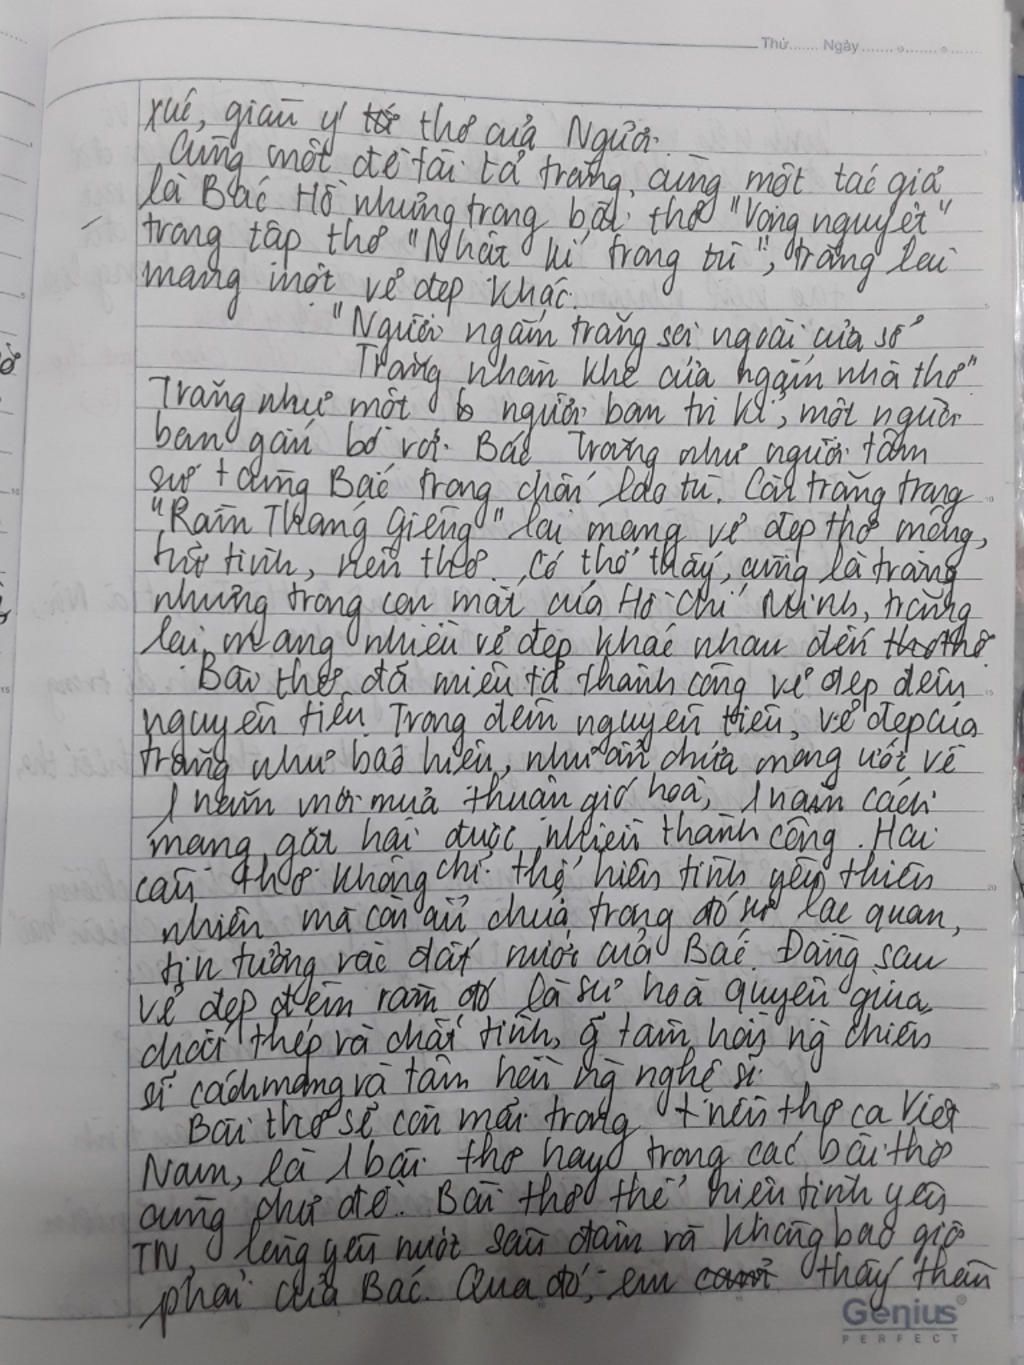 Thứ....... Ngày...............
xúc, giàu ý tứ thơ của Người.
Cũng một đề tài tả trăng, cùng một tác giả
là Bác Hồ nhưng trong bài thơ "Vọng nguyệt"
trong tập thơ "Nhật kí trong tù", trăng lại
mang một vẻ đẹp khác.
"Người ngắm trăng soi ngoài cửa sổ
Trăng nhòm khe cửa ngắm nhà thơ"
Trăng như một người bạn tri kỉ, một người
bạn gắn bó với Bác. Trăng như người tâm
sự cùng Bác trong chốn lao tù. Còn trăng trong
"Rằm Tháng Giêng" lại mang vẻ đẹp thơ mộng,
trữ tình, nên thơ. Có thể thấy, cùng là trăng
nhưng trong con mắt của Hồ Chí Minh, trăng
lại mang nhiều vẻ đẹp khác nhau đến thơ
Bài thơ đã miêu tả thành công vẻ đẹp đêm
nguyên tiêu. Trong đêm nguyên tiêu, vẻ đẹp của
trăng như báo hiệu, như ẩn chứa mong ước về
1 năm mới mưa thuận gió hoà, 1 năm cách
mạng gặt hái được nhiều thành công. Hai
câu thơ không chỉ thể hiện tình yêu thiên
nhiên mà còn ẩn chứa trong đó sự lạc quan,
tin tưởng vào đất nước của Bác. Đằng sau
vẻ đẹp đêm rằm đó là sự hoà quyện giữa
chất thép và chất tình, tâm hồn ng chiến
sĩ cách mạng và tâm hồn ng nghệ sĩ.
Bài thơ sẽ còn mãi trong nền thơ ca Việt
Nam, là 1 bài thơ hay trong các bài thơ
cùng chủ đề. Bài thơ thể hiện tình yêu
TN, lòng yêu nước sâu đậm và không bao giờ
phai của Bác. Qua đó, em thấy thêm
Genius
PERFECT